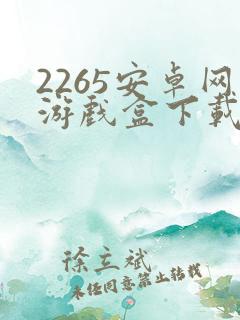 2265安卓网
游戏盒下载
徐立斌
未经同意禁止转载